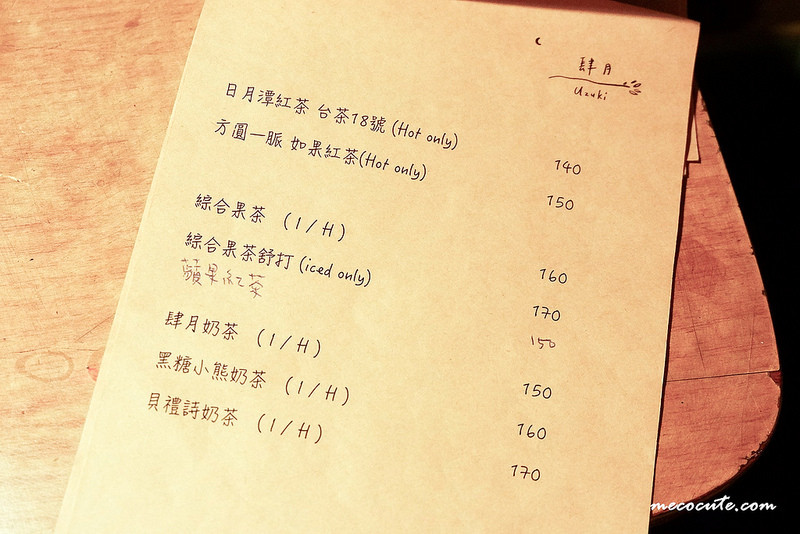 肆月
Uzuki
日月潭紅茶 台茶18號 (Hot only) 140
方圓一脈 如果紅茶(Hot only) 150
綜合果茶 (I/H) 160
綜合果茶舒打 (iced only) 170
蘋果紅茶 150
肆月奶茶 (I/H) 150
黑糖小熊奶茶 (I/H) 160
貝禮詩奶茶 (I/H) 170
mecocute.com